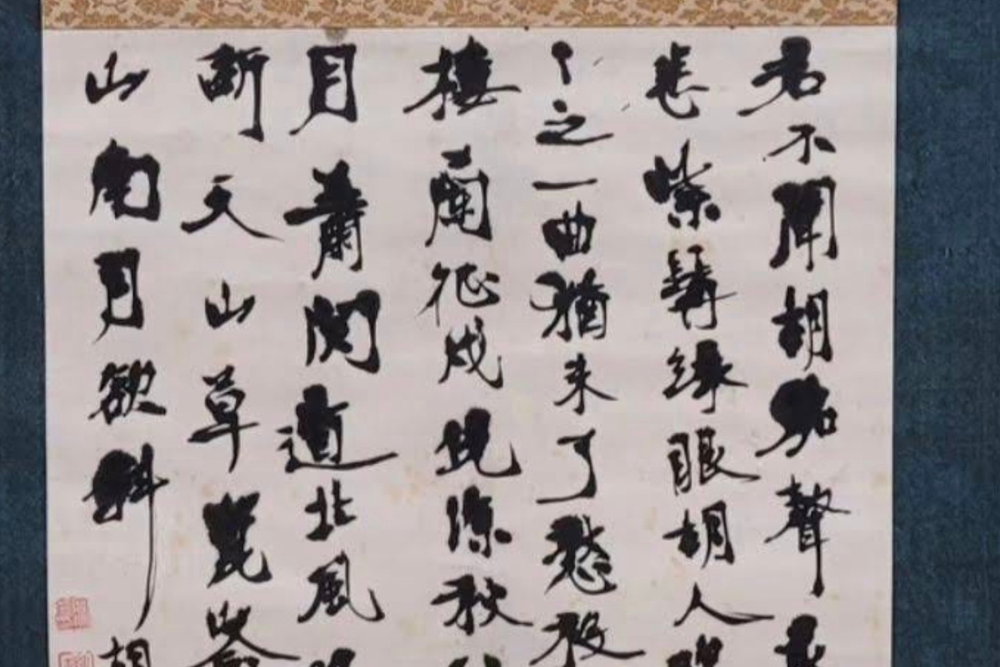 君不聞胡笳聲
悲紫髯綠眼胡人
〻之一曲猶未了愁殺
樓蘭征戍兒涼秋
月蕭關道北風
斷天山草崑崙
山南月欲斜胡